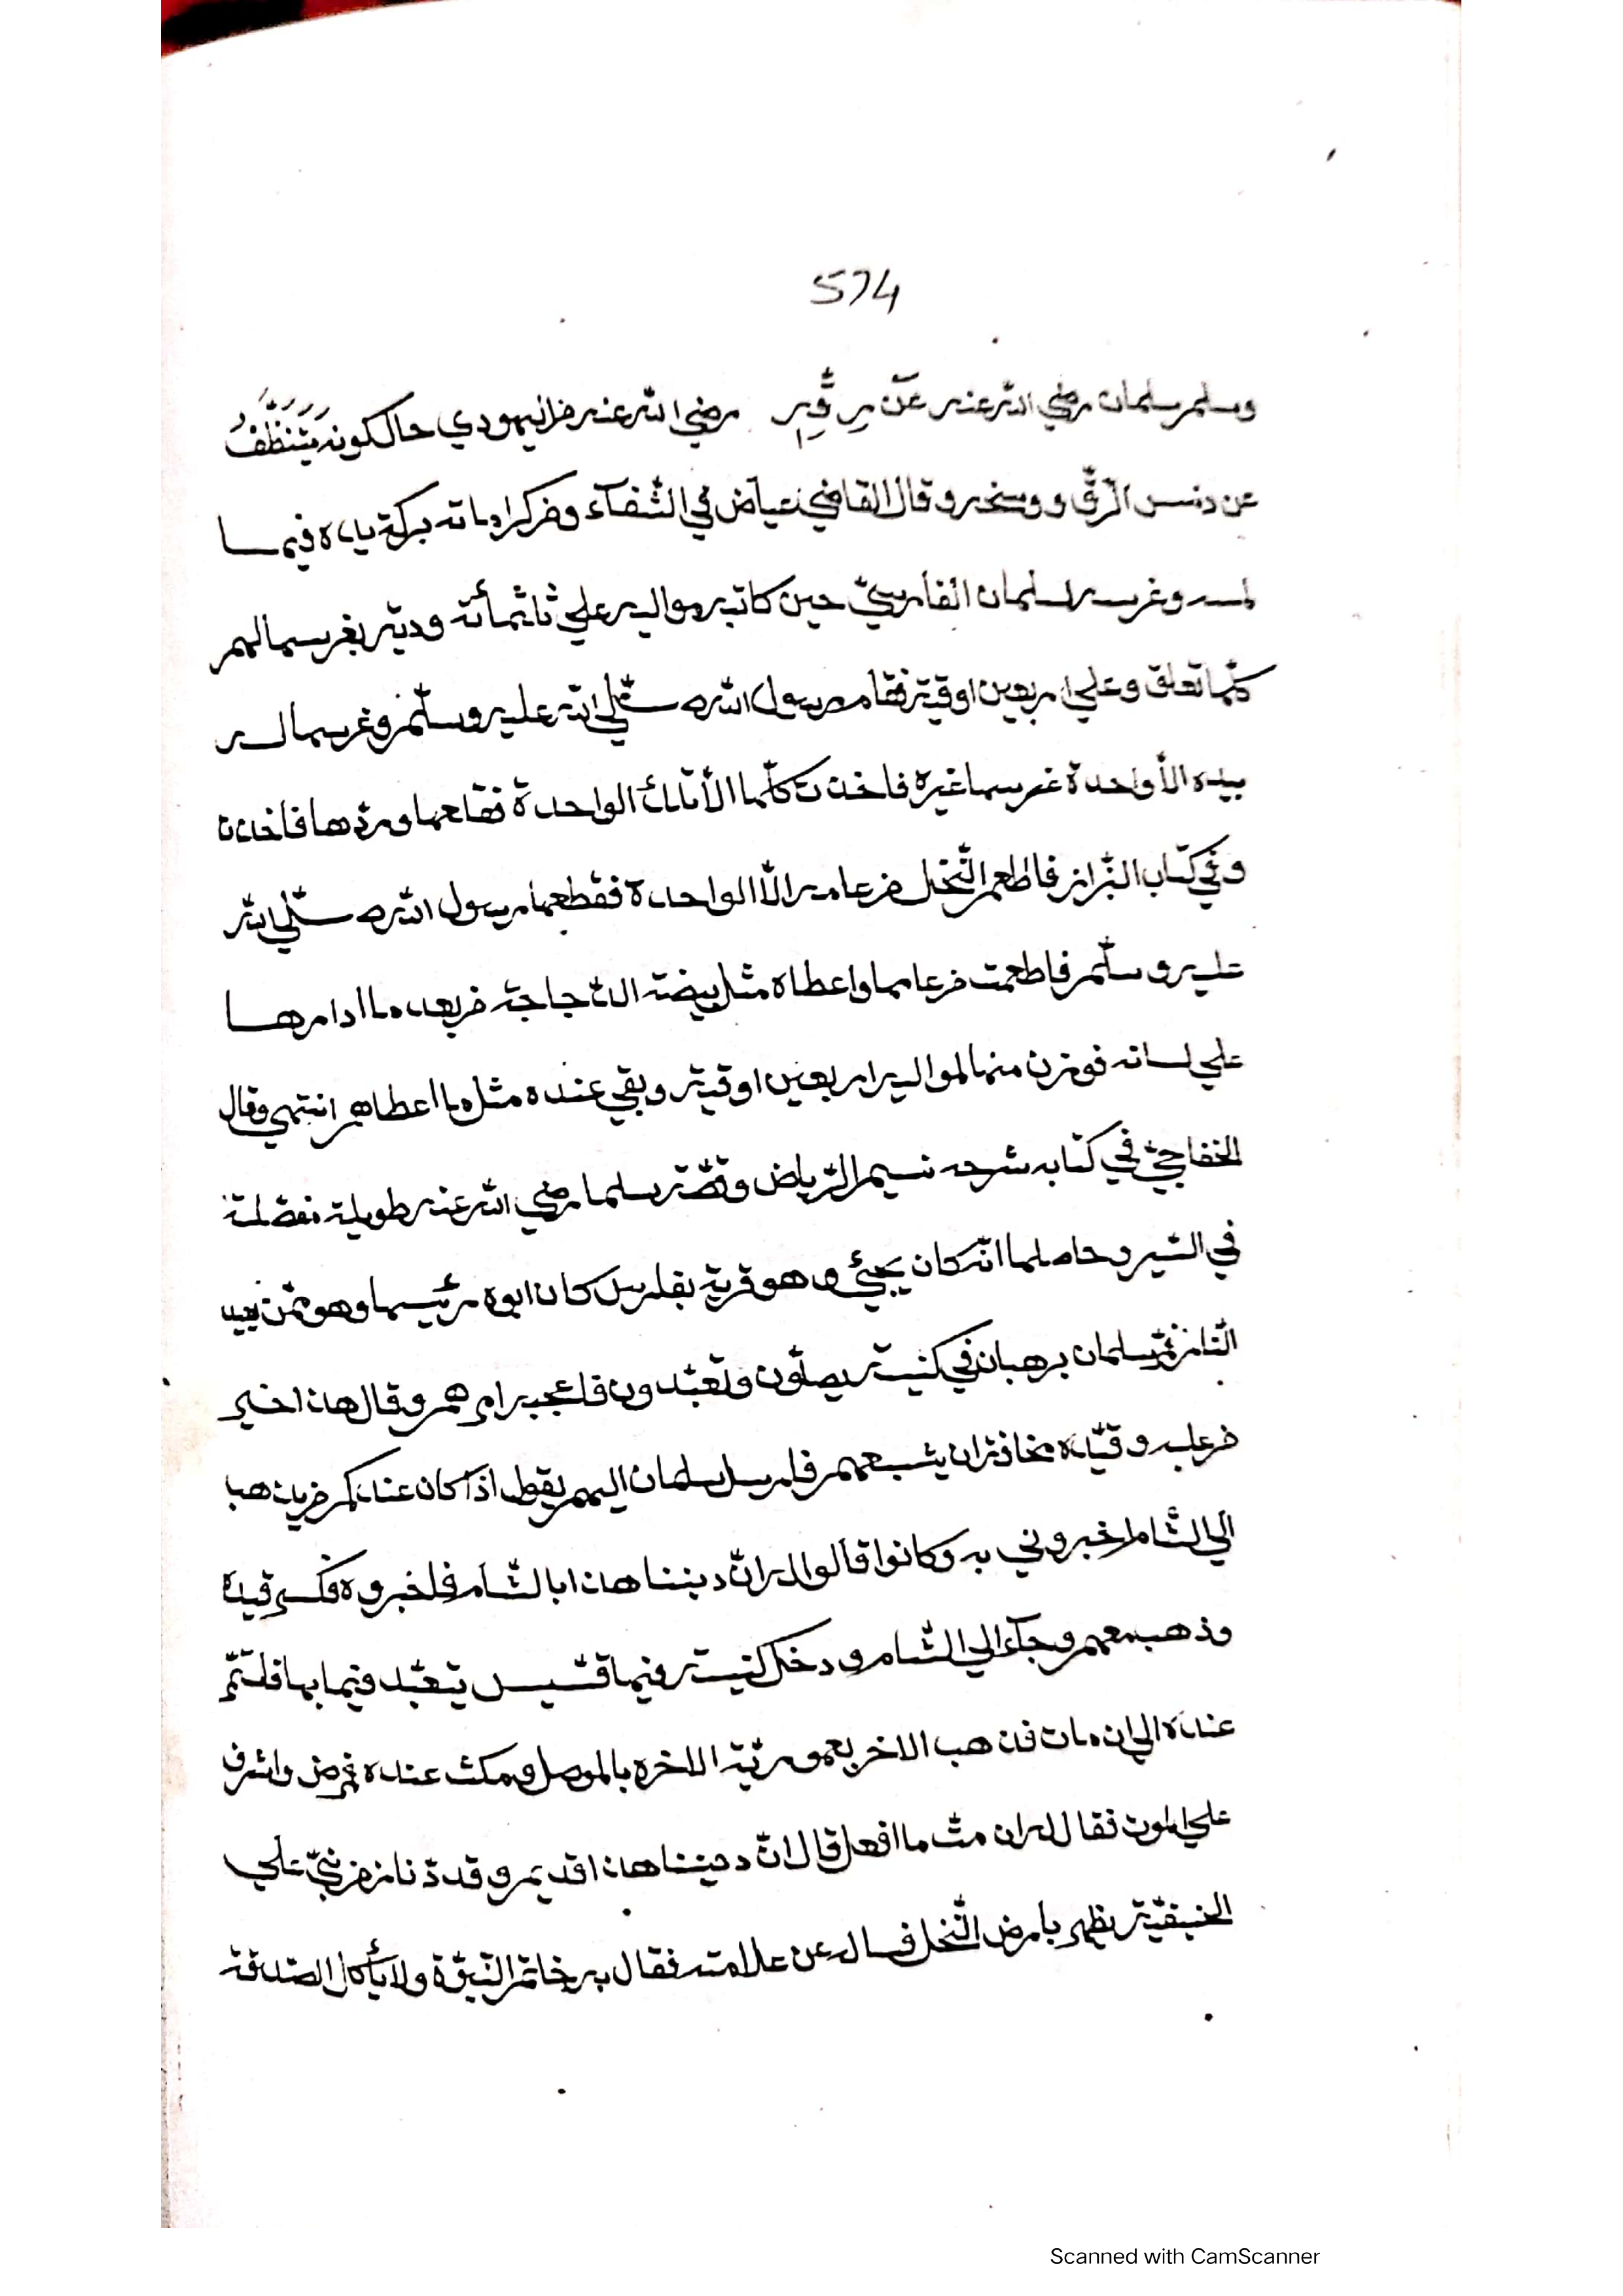 574
وسلم سلمان رضي الله عنه عن رقّه رضي الله عنه من اليهودي حالكونه يَتَنَظَّفُ
عن دنس الرّقّ و وسخه و قال القاضي عياض في الشّفآء و من كراماته بركة يده فيما
لمسه و غرسه لسلمان الفارسيّ حين كاتبه مواليه علي ثلثمائة ودية يغرسها لهم
كلّها تعلق و علي اربعين اوقية فقام رسول الله صلّي الله عليه وسلّم و غرسها له
بيده الّا واحدة غرسها غيره فاخذت كلّها الّا تلك الواحدة فقلعها و ردّها فاخذت
و في كتاب البزّاز فاطعم النّخل من عامه الّا الواحدة فقطعها رسول الله صلّي الله
عليه و سلّم فاطعمت من عامها واعطاه مثل بيضة الدّجاجة من بعد ما ادارها
علي لسانه فوزن منها لمواليه اربعين اوقية و بقي عنده مثل ما اعطاهم انتهي و قال
الخفاجيّ في كتابه شرحه نسيم الرّياض و قصّة سلما رضي الله عنه طويلة مفصّلة
في السّير و حاصلها انّه كان يجيئ و هو قرية بفارس كان ابوه رئيسها و هو ممّن يعبد
النّار فمرّ سلمان برهبان في كنيسة يصلّون و تعبّدون فاعجبه امرهم و قال هذا خير
عليه و قيّده مخافة ان يتبعهم فارسل سلمان اليهم يقول اذا كان عندكم من يذهب
الي الشّام اخبروني به و كانوا قالوا له انّ ديننا هذا بالشّام فاخبروه فكسر قيده
وذهب معهم و جآء الي الشّام و دخل كنيسة فيها قسّيس يتعبّد فيها بها
عنده الي ان مات فذهب الاخر بعمورية الاخره بالموصل و مكث عنده فمرض واشرف
علي الموت فقال له ان متّ ما افعل قال انّ ديننا هذا قديم و قد نبيّ علي
الحنيفيّة يظهر بارض النّخل فساله عن علامته فقال به خاتم النّبوّة ولا يأكل الصّدقة
Scanned with CamScanner